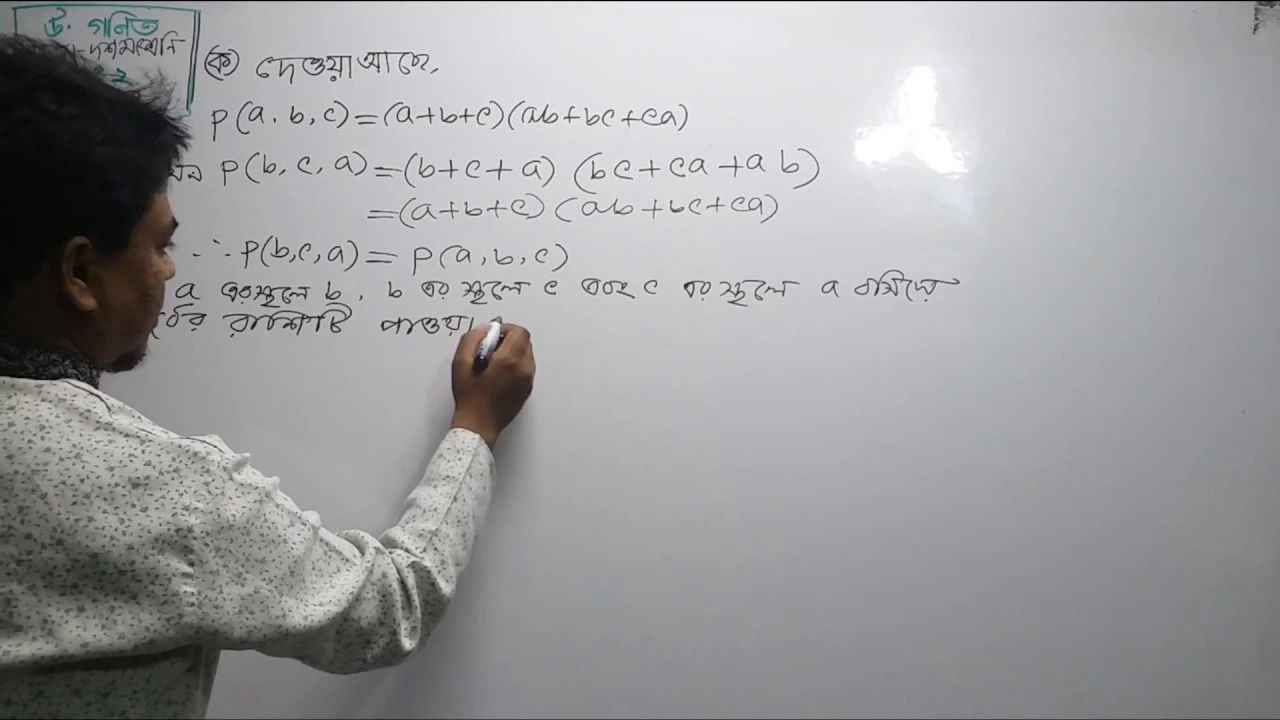 উ. গনিত
-দশমশ্রেনি
২
(ক) দেওয়া আছে,
P(a, b, c)=(a+b+c)(ab+bc+ca)
P(b, c, a)=(b+c+a) (bc+ca+ab)
=(a+b+c) (ab+bc+ca)
∴ P(b,c,a)= P(a,b,c)
a এর স্থলে b, b এর স্থলে c এবং c এর স্থলে a বসিয়ে
রাশিটি পাওয়া